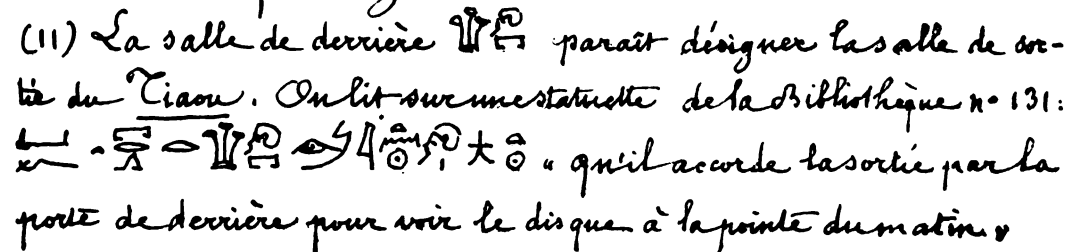 (11) La salle de derrière paraît désigner la salle de sor-
tie du Tiaou. On lit sur une statuette de la Bibliothèque n° 131:
« qu'il accorde la sortie par la
porte de derrière pour voir le disque à la pointe du matin. »